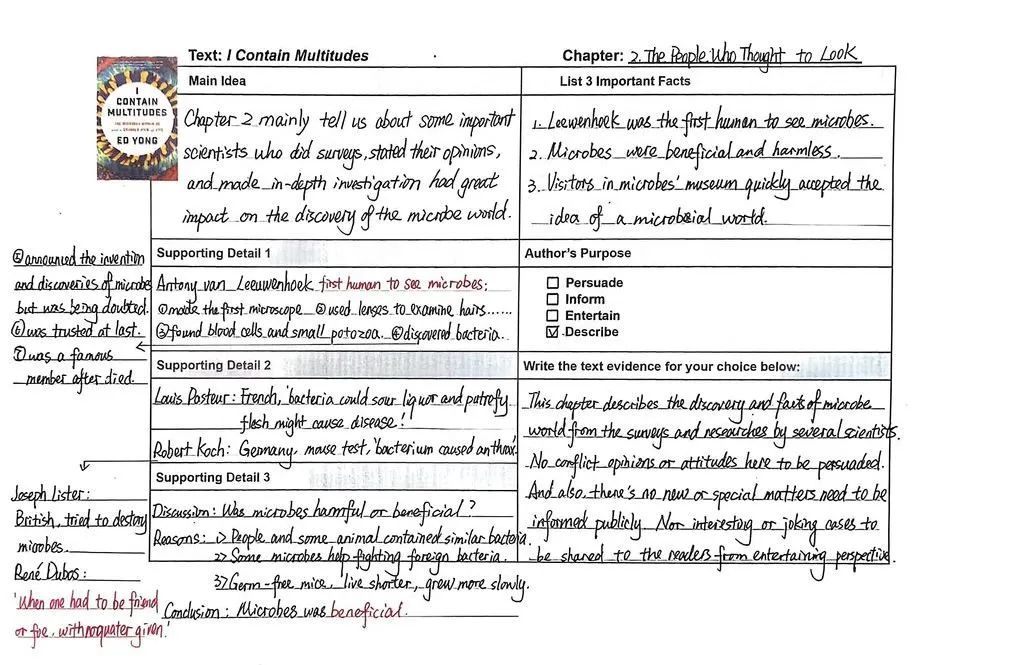 Text: I Contain Multitudes
Chapter: 2. The People Who Thought to Look
I
CONTAIN
MULTITUDES
ED YONG
Main Idea
Chapter 2 mainly tell us about some important
scientists who did surveys, stated their opinions,
and made in-depth investigation had great
impact on the discovery of the microbe world.
List 3 Important Facts
1. Leewenhoek was the first human to see microbes.
2. Microbes were beneficial and harmless.
3. Visitors in microbes' museum quickly accepted the
idea of a microbeial world.
Supporting Detail 1
Antony van Leeuwenhoek first human to see microbes:
①made the first microscope ②used lenses to examine hairs......
③found blood cells and small potozoa. ④discovered bacteria.
⑤announced the invention
and discoveries of microbe
but was being doubted.
⑥was trusted at last.
⑦was a famous
member after died.
Author's Purpose
Persuade
Inform
Entertain
Describe
Supporting Detail 2
Louis Pasteur: French, 'bacteria could sour liquor and putrefy
flesh might cause disease!
Robert Koch: Germany, mouse test, 'bacterium caused anthrax'
Joseph Lister:
British, tried to destroy
microbes.
René Dubos:
'When one had to be friend
or foe, with no quater given.'
Supporting Detail 3
Discussion: Was microbes harmful or beneficial?
Reasons: 1> People and some animal contained similar bacteria.
2> Some microbes help fighting foreign bacteria.
3> Germ-free mice, live shorter, grew more slowly.
Conclusion: Microbes was beneficial.
Write the text evidence for your choice below:
This chapter describes the discovery and facts of microbe
world from the surveys and researches by several scientists.
No conflict opinions or attitudes here to be persuaded.
And also, there's no new or special matters need to be
informed publicly. Nor interesting or joking cases to
be shared to the readers from entertaining perspective.